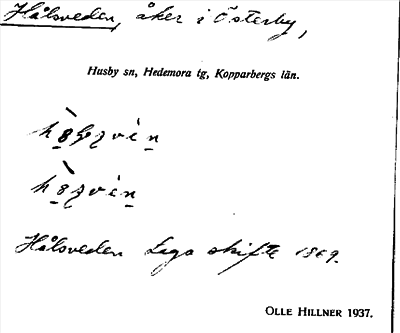 Hålsveden, åker i Österby,
Husby sn, Hedemora tg, Kopparbergs län.
Hålsveden Laga skifte 1869.
OLLE HILLNER 1937.